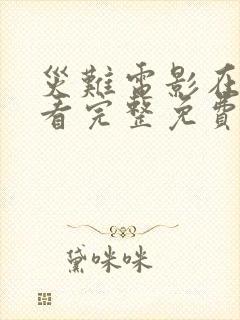 災難電影在
看完整免費
黛咪咪